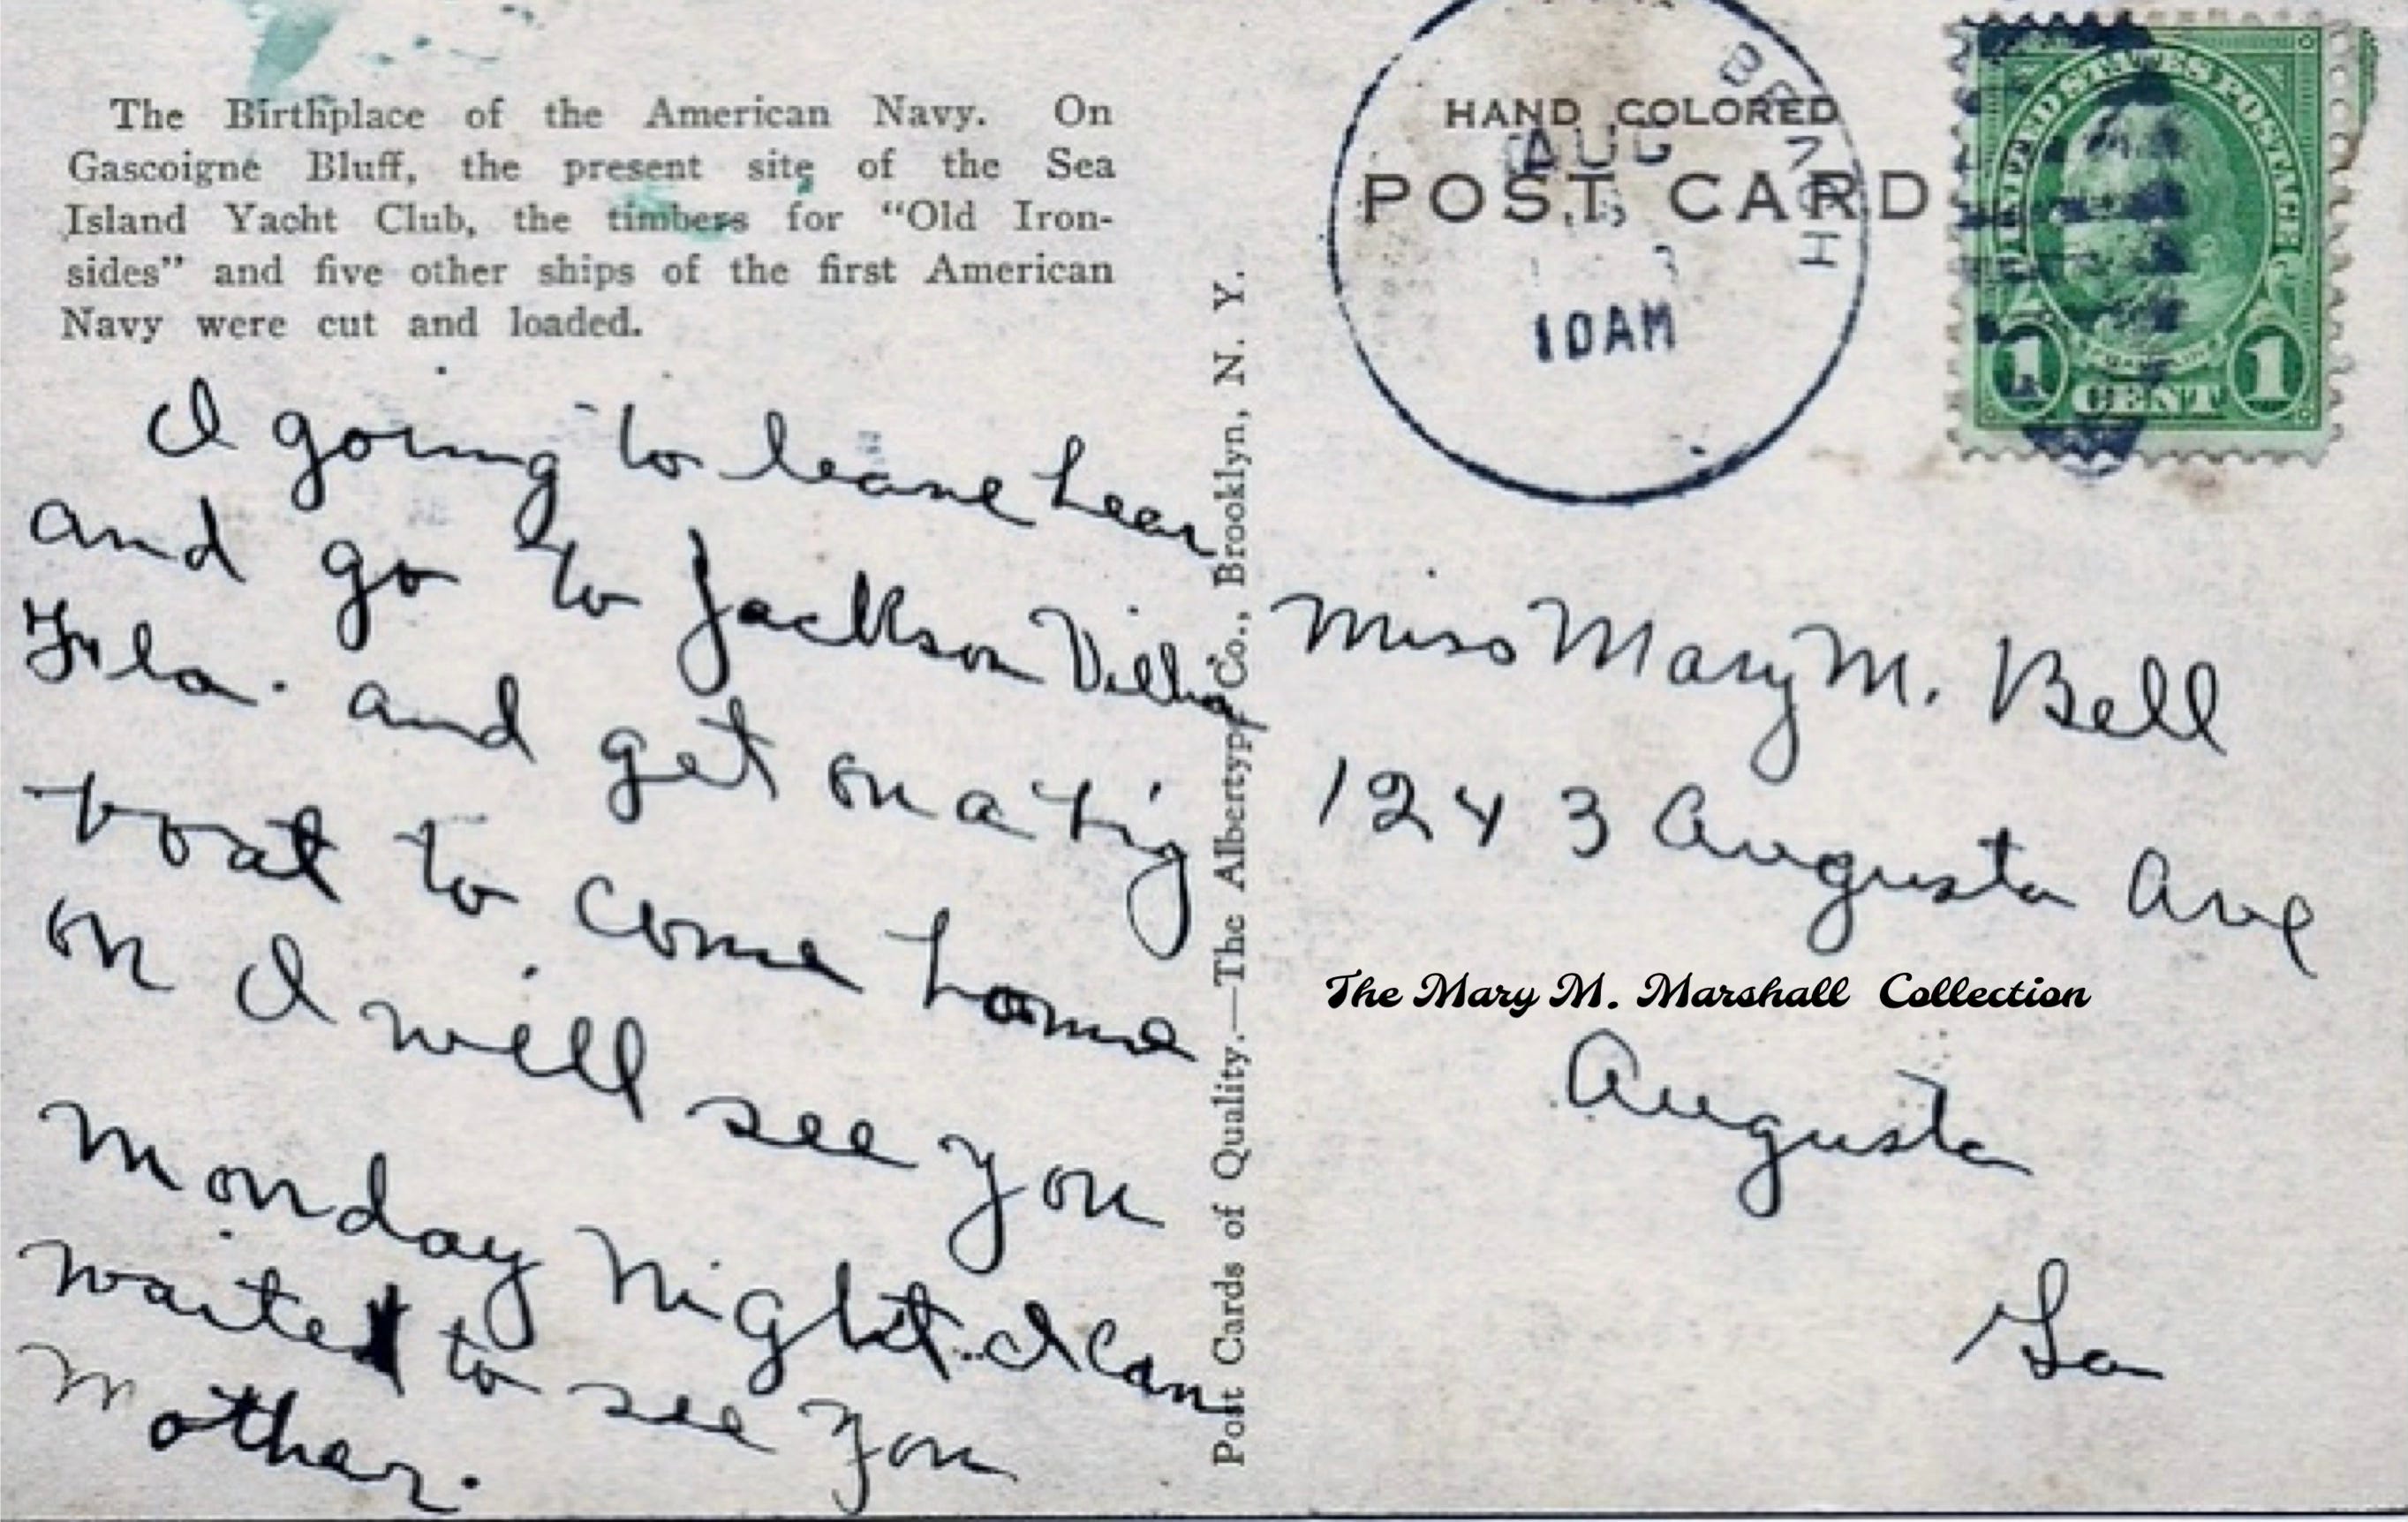 The Birthplace of the American Navy. On
Gascoigne Bluff, the present site of the Sea
Island Yacht Club, the timbers for “Old Iron-
sides” and five other ships of the first American
Navy were cut and loaded.
I going to leave hear
and go to Jackson Villa
Fla. and get on a big
boat to come home
on I will see you
Monday Night. I Can
waite to see you
Mother.
Post Cards of Quality.—The Albertype Co., Brooklyn, N. Y.
HAND COLORED
POST CARD
BEACH
AUG
10AM
UNITED STATES POSTAGE
FRANKLIN
1 CENT 1
Miss Mary M. Bell
1243 Augusta Ave
The Mary M. Marshall Collection
Augusta
Ga